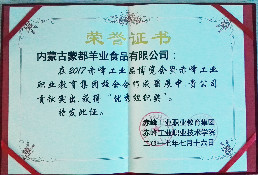 荣誉证书
内蒙古蒙都羊业食品有限公司：
在2017赤峰工业应博览会暨赤峰工业
职业教育集团校企合作成果展中，贵公司
贡献突出，获得“优秀组织奖”。
特发此证。
赤峰工业职业教育集团
赤峰工业职业技术学院
二〇一七年七月十六日